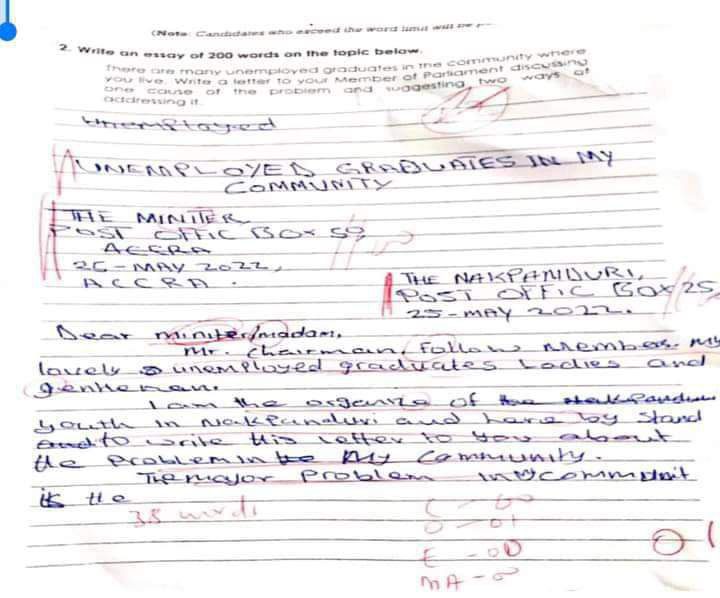 (Note: Candidates who exceed the word limit will be
2. Write an essay of 200 words on the topic below.
There are many unemployed graduates in the community where
you live. Write a letter to your Member of Parliament discussing
one cause of the problem and suggesting two ways of
addressing it.
Unemployed
UNEMPLOYED GRADUATES IN MY
COMMUNITY
THE MINITER
POST OFFIC BOX 50
ACCRA
26-MAY 2022,
ACCRA.
THE NAKPANDURI,
POST OFFIC BOX 25,
25-MAY 2022.
Dear miniter/madam,
Mr. Chairman, Fallow Members. My
lovely unemployed graduates Ladies and
gentleman.
I am the organize of
youth in Nakpanduri and here by stand
to write this letter to you about
the problem in My Community.
The major problem in my communit
is the
38 words
C - 00
O - 01
E - 00
MA - 0
01